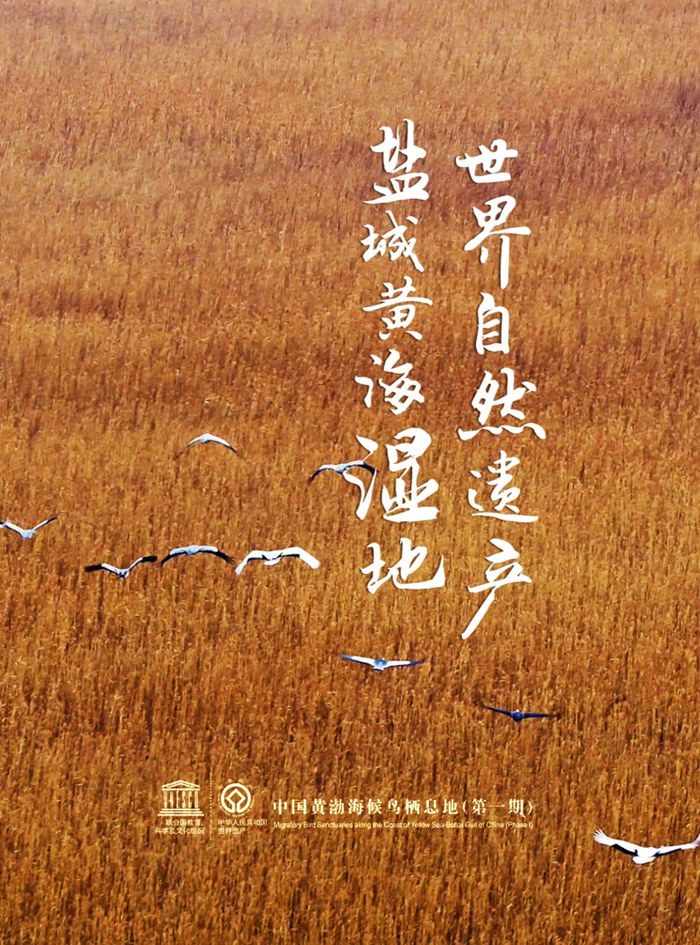 世界自然遗产
盐城黄海湿地
联合国教育、
科学及文化组织
中华人民共和国
世界遗产
中国黄渤海候鸟栖息地(第一期)
Migratory Bird Sanctuaries along the Coast of Yellow Sea-Bohai Gulf of China (Phase I)